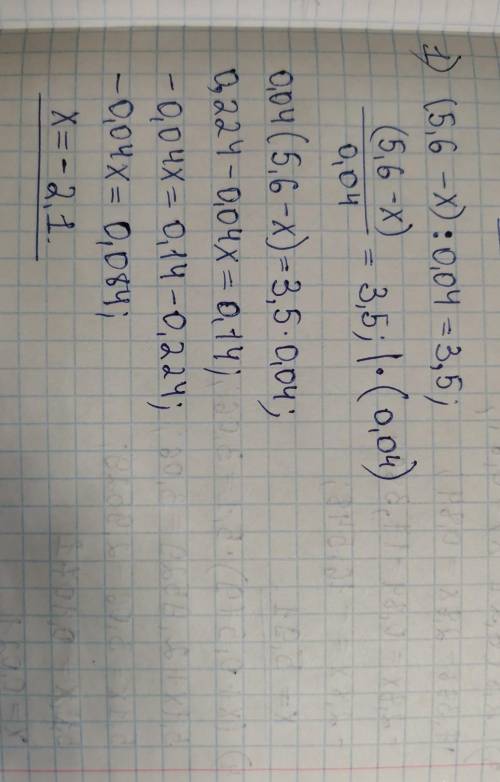 1) (5,6 - x) : 0,04 = 3,5;
(5,6 - x)
0,04
= 3,5; | · (0,04)
0,04 (5,6 - x) = 3,5 · 0,04;
0,224 - 0,04x = 0,14;
- 0,04x = 0,14 - 0,224;
- 0,04x = 0,084;
x = - 2,1.